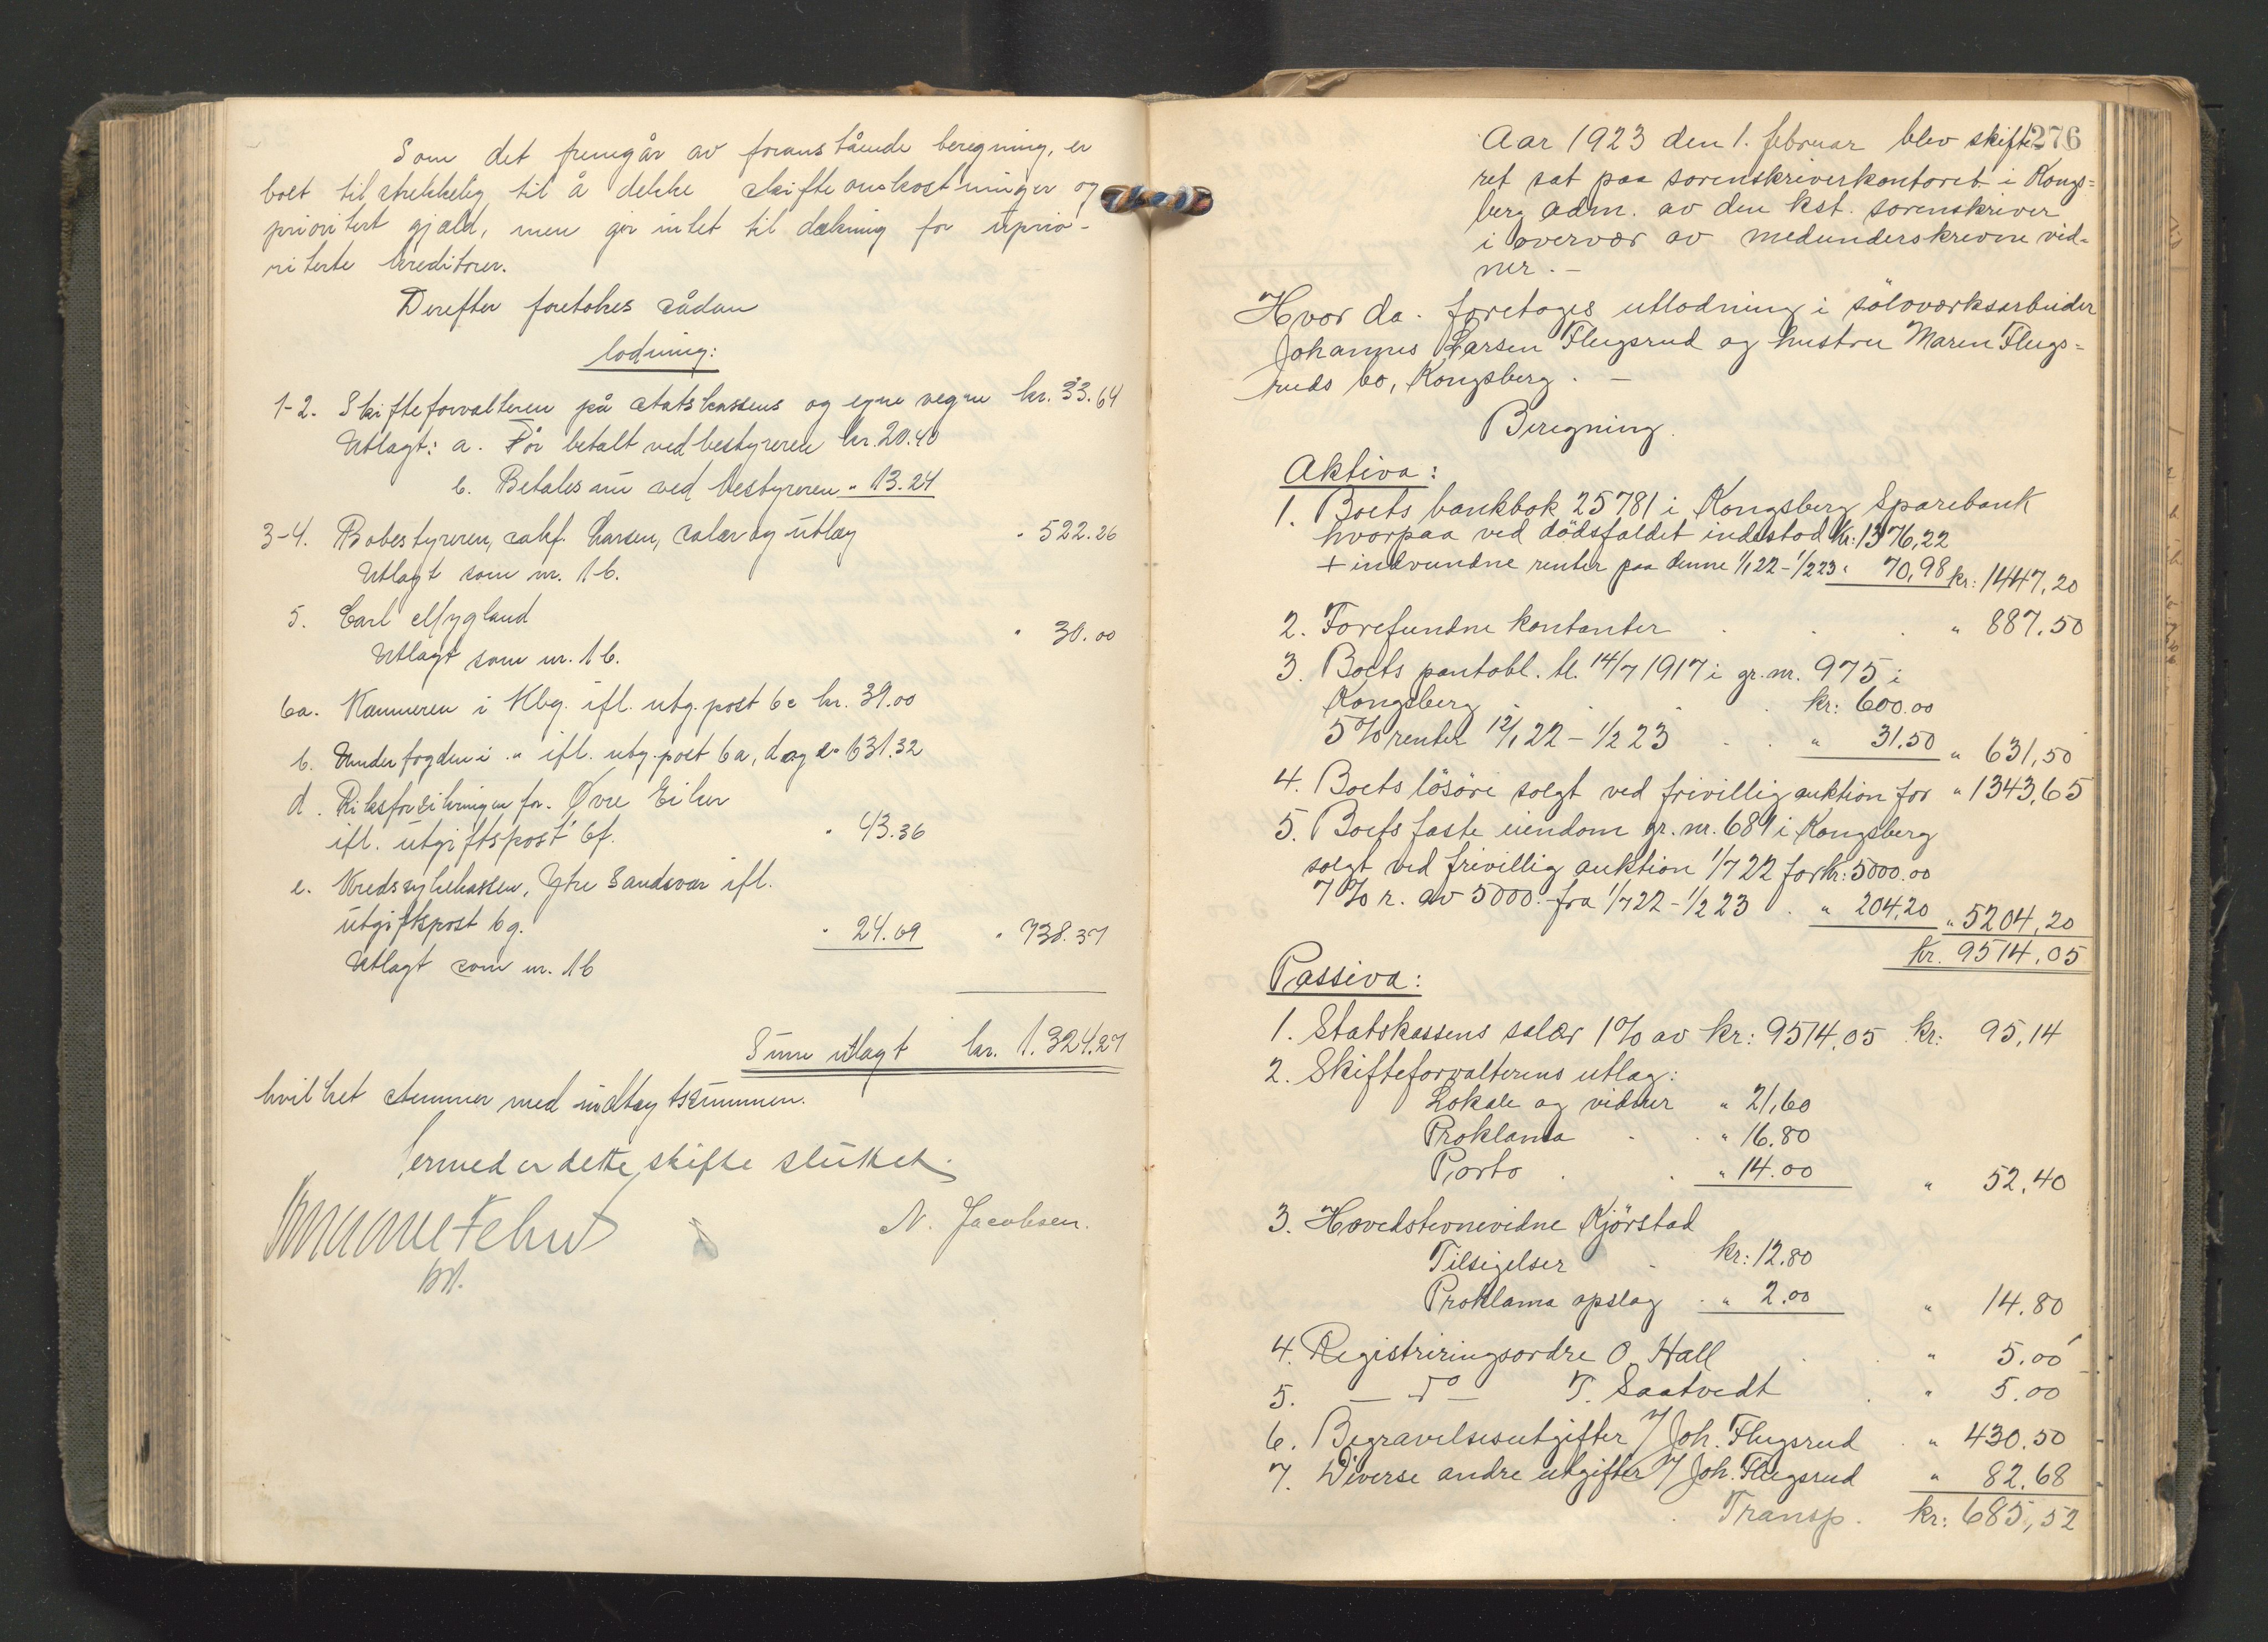 Som det fremgår av foranstående beregning, er
boet tilstrekkelig til å dekke skifteomkostninger og
prioritert gjæld, men gir intet til dækning for uprio-
riterte kreditorer.
Derefter foretokes sådan
lodning:
1-2. Skifteforvalteren på statskassens og egne vegne kr. 33.64
Utlagt: a. Før betalt ved bestyreren kr. 20.40
b. Betales nu ved bestyreren " 13.24
3-4. Bobestyreren, sakf. Larsen, salær og utlæg " 522.26
Utlagt som nr. 1 b.
5. Carl Mygland " 30.00
Utlagt som nr. 1 b.
6a. Kæmneren i Kbg. ifl. utg. post 6c kr. 39.00
b. Underfogden i " ifl. utg. post 6a, d og e " 631.32
d. Riksforsikringen for Øvre Eiker
ifl. utgiftspost 6f. " 43.36
e. Kredssykekassen, Ytre Sandsvær ifl.
utgiftspost 6g. " 24.69 " 738.37
Utlagt som nr. 1 b
Sum utlagt kr. 1.324.27
hvilket stemmer med indtægtssummen.
Hermed er dette skifte sluttet.
N. Jacobsen.
276
Aar 1923 den 1. februar blev skifte-
ret sat paa sorenskriverkontoret i Kongs=
berg adm. av den kst. sorenskriver
i overvær av medunderskrevne vid-
ner. –
Hvor da. foretoges utlodning i sölvverksarbeider
Johannes Larsen Flugsrud og hustru Maren Flugs=
ruds bo, Kongsberg. –
Beregning.
Aktiva:
1. Boets bankbok 25781 i Kongsberg Sparebank
hvorpaa ved dödsfaldet indestod kr: 1376,22
+ indvundne renter paa denne 1/1 22 – 1/2 23 " 70,98 kr: 1447,20
2. Forefundne kontanter " 887.50
3. Boets pantobl. tl. 14/7 1917 i gr. nr. 975 i
Kongsberg kr: 600.00
5 % renter 12/1 22 – 1/2 23 " 31.50 " 631,50
4. Boets lösöre solgt ved frivillig auktion for " 1343,65
5. Boets faste eiendom gr. nr. 681 i Kongsberg
solgt ved frivillig auktion 1/7 22 for kr: 5000.00
7 % r. av 5000.- fra 1/7 22 – 1/2 23 " 204,20 " 5204,20
kr. 9514,05
Passiva:
1. Statskassens salær 1 % av kr: 9514,05 kr: 95,14
2. Skifteforvalterens utlæg:
Lokale og vidner " 21,60
Proklama " 16.80
Porto " 14.00 " 52,40
3. Hovedstevnevidne Kjörstad
Tilsigelser kr: 12.80
Proklama opslag " 2.00 " 14.80
4. Registreringsordre O. Hall " 5.00
5. – do – T. Saatvedt " 5.00
6. Begravelsesutgifter / Joh. Flugsrud " 430.50
7. Diverse andre utgifter / Joh. Flugsrud " 82.68
Transp. kr: 685,52